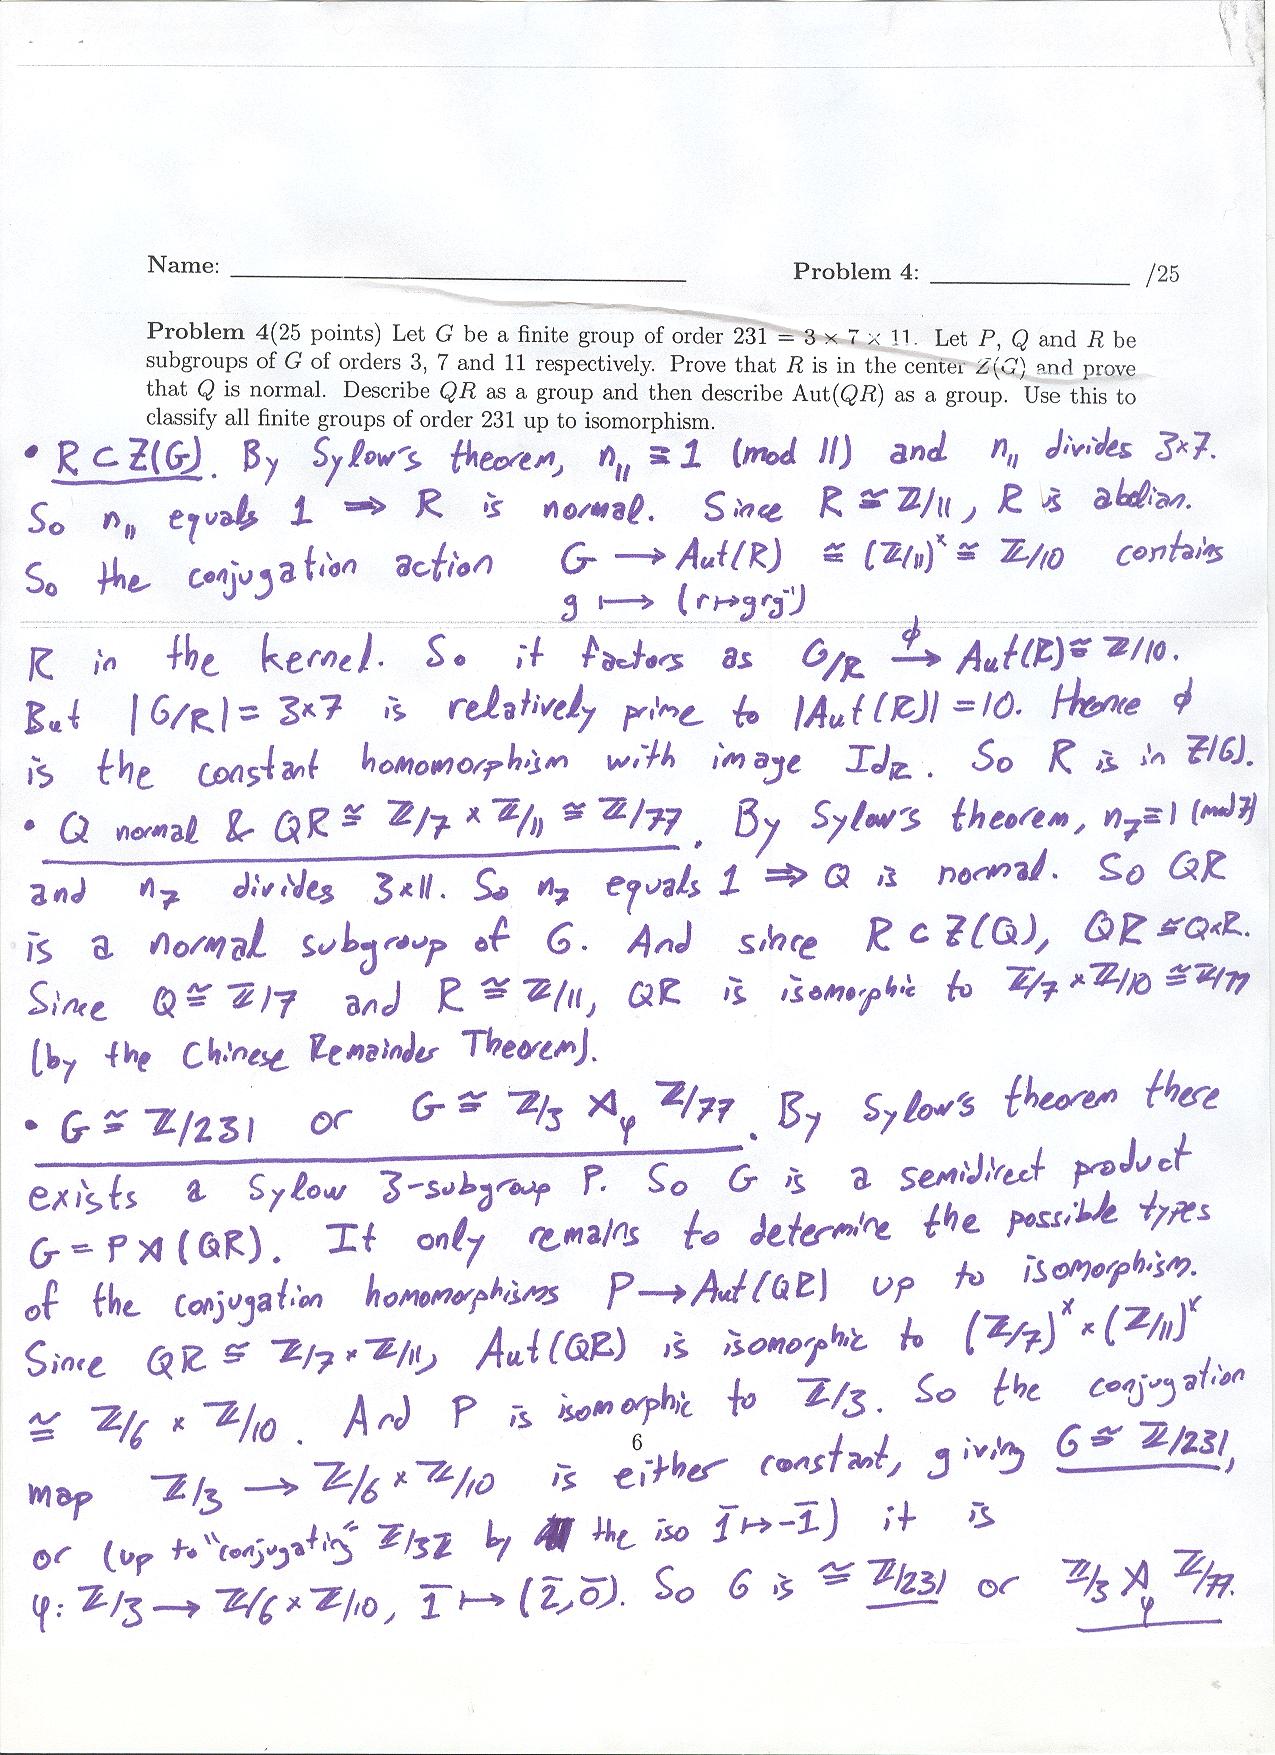 Name: ____________ Problem 4: ____________ /25
Problem 4(25 points) Let G be a finite group of order 231 = 3 × 7 × 11. Let P, Q and R be
subgroups of G of orders 3, 7 and 11 respectively. Prove that R is in the center Z(G) and prove
that Q is normal. Describe QR as a group and then describe Aut(QR) as a group. Use this to
classify all finite groups of order 231 up to isomorphism.
• R ⊂ Z(G). By Sylow's theorem, n₁₁ ≡ 1 (mod 11) and n₁₁ divides 3×7.
So n₁₁ equals 1 ⟹ R is normal. Since R ≅ ℤ/11, R is abelian.
So the conjugation action G ⟶ Aut(R) ≅ (ℤ/11)^× ≅ ℤ/10 contains
g ⟼ (r↦grg⁻¹)
R in the kernel. So it factors as G/R —ϕ→ Aut(R) ≅ ℤ/10.
But |G/R| = 3×7 is relatively prime to |Aut(R)| = 10. Hence ϕ
is the constant homomorphism with image Id_R. So R is in Z(G).
• Q normal & QR ≅ ℤ/7 × ℤ/11 ≅ ℤ/77. By Sylow's theorem, n₇ ≡ 1 (mod 7)
and n₇ divides 3×11. So n₇ equals 1 ⟹ Q is normal. So QR
is a normal subgroup of G. And since R ⊂ Z(Q), QR ≅ Q×R.
Since Q ≅ ℤ/7 and R ≅ ℤ/11, QR is isomorphic to ℤ/7 × ℤ/10 ≅ ℤ/77
(by the Chinese Remainder Theorem).
• G ≅ ℤ/231 or G ≅ ℤ/3 ⋊_φ ℤ/77. By Sylow's theorem there
exists a Sylow 3-subgroup P. So G is a semidirect product
G = P ⋊ (QR). It only remains to determine the possible types
of the conjugation homomorphisms P ⟶ Aut(QR) up to isomorphism.
Since QR ≅ ℤ/7 × ℤ/11, Aut(QR) is isomorphic to (ℤ/7)^× × (ℤ/11)^×
≅ ℤ/6 × ℤ/10. And P is isomorphic to ℤ/3. So the conjugation
6
map ℤ/3 ⟶ ℤ/6 × ℤ/10 is either constant, giving G ≅ ℤ/231,
or (up to "conjugating" ℤ/3ℤ by the iso 1̄ ↦ -1̄) it is
φ: ℤ/3 ⟶ ℤ/6 × ℤ/10, 1̄ ⟼ (2̄, 0̄). So G is ≅ ℤ/231 or ℤ/3 ⋊_φ ℤ/77.